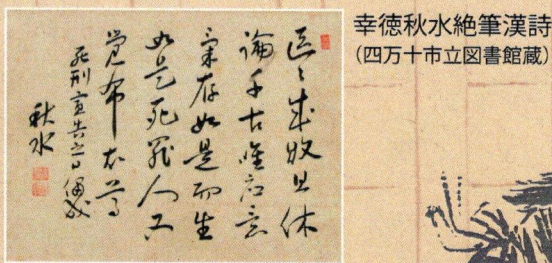 幸徳秋水絶筆漢詩
(四万十市立図書館蔵)
区々成敗且休
論千古唯応意
気存如是而生
如是死罪人又
覚布衣尊
死刑宣告之日偶成
秋水